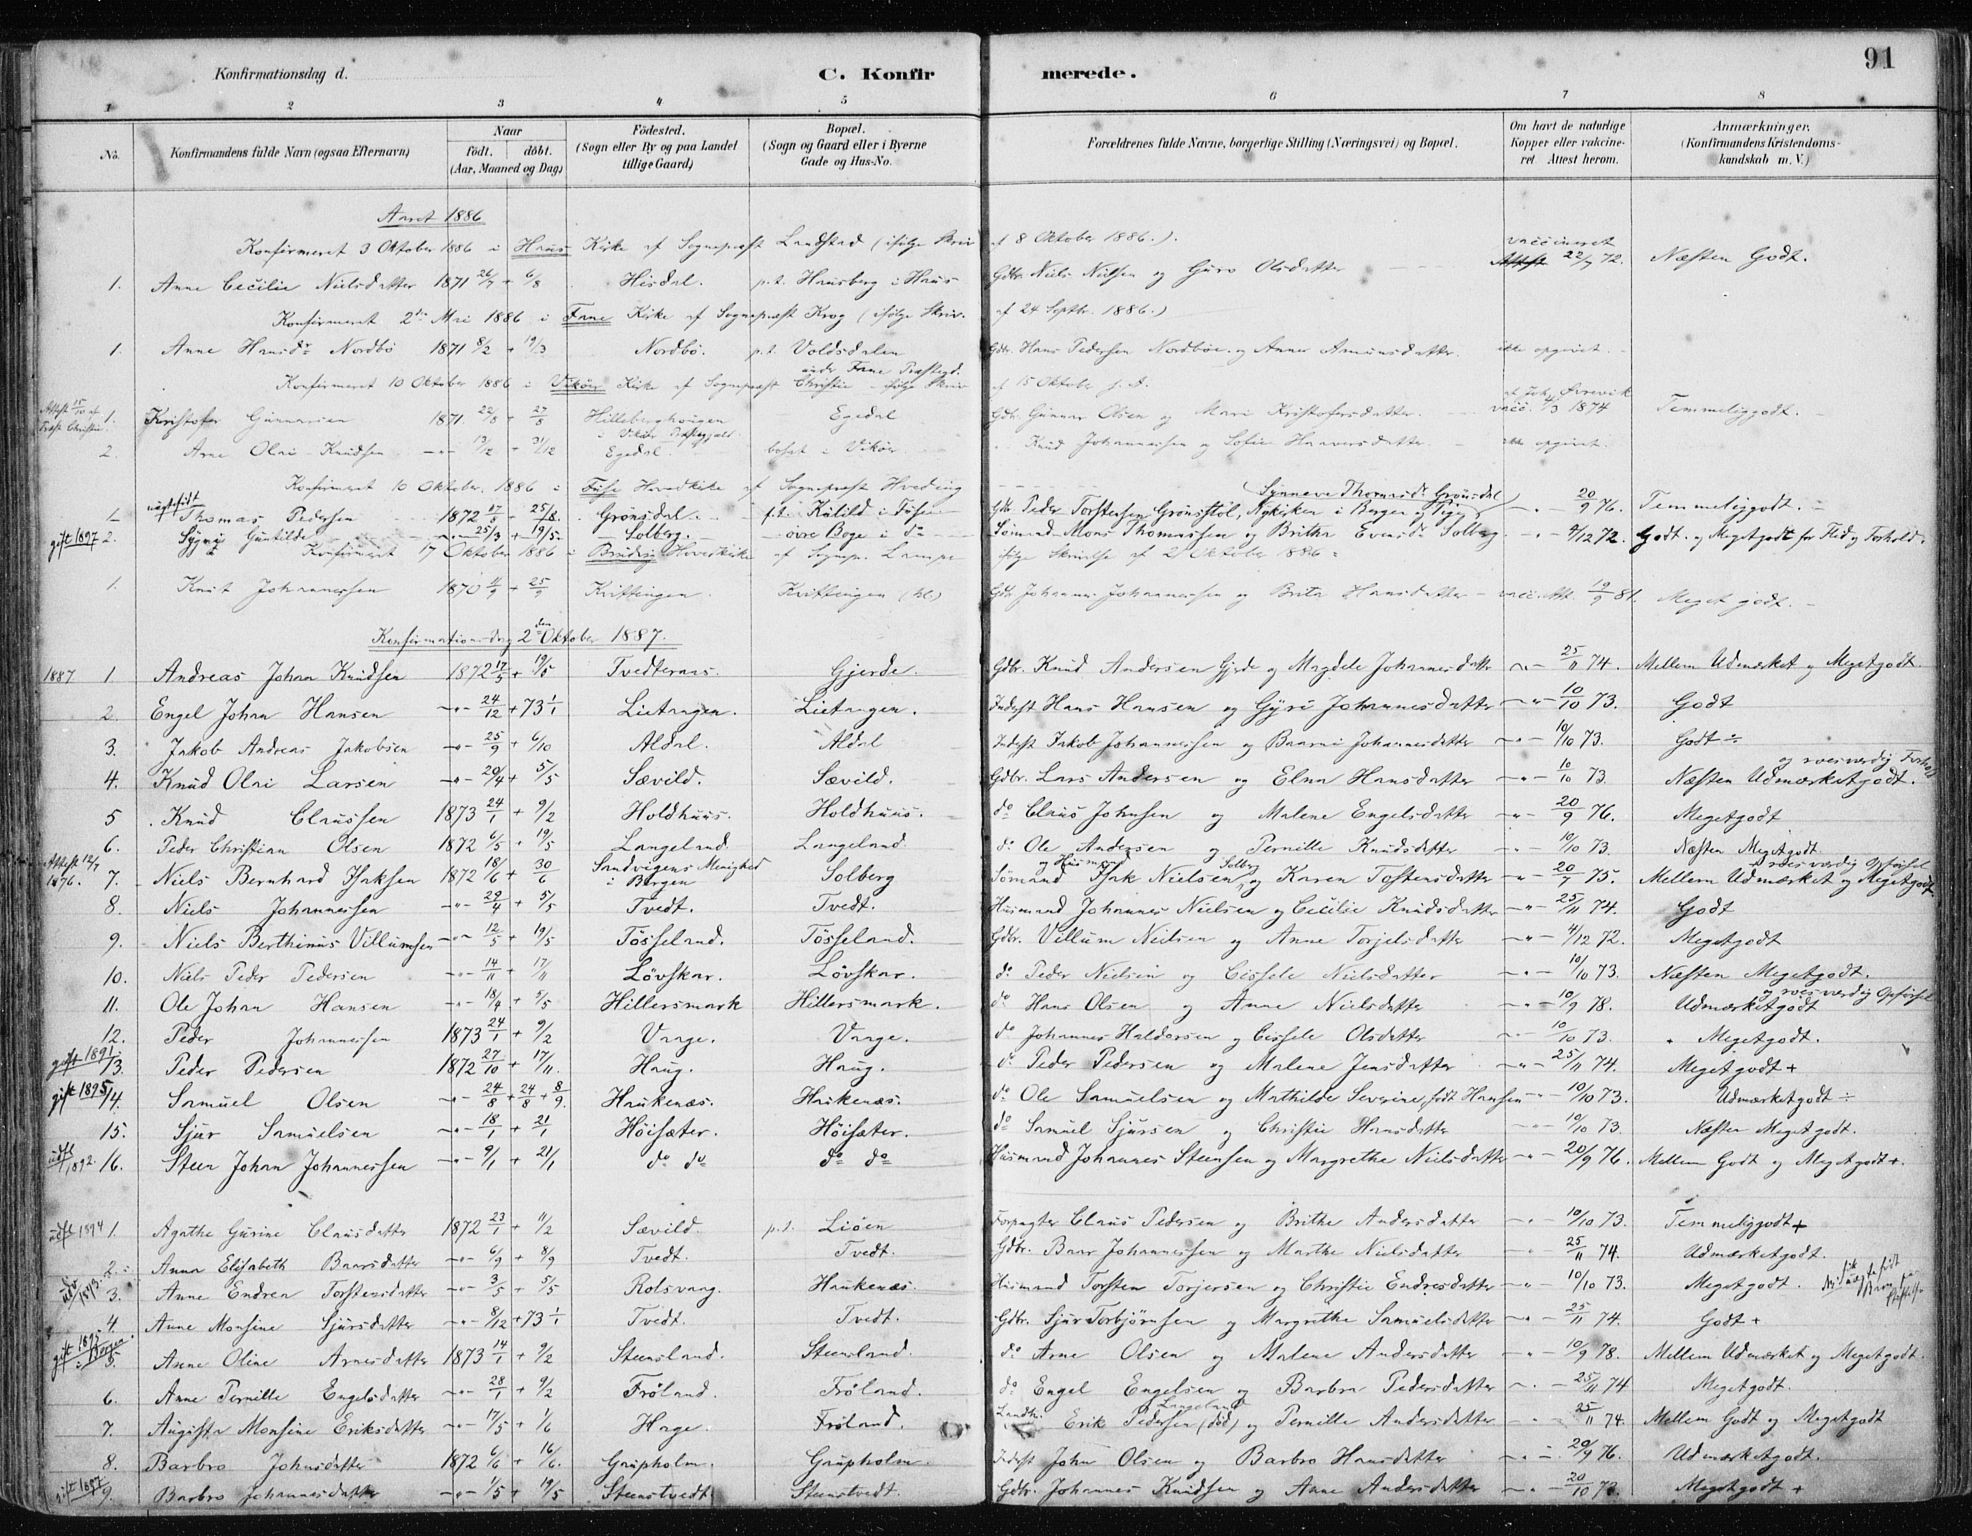 91
Konfirmationsdag d. C. Konfirmerede.
1 2 3 4 5 6 7 8
No. Konfirmandens fulde Navn (ogsaa Efternavn) Naar födt. döbt. (Aar, Maaned og Dag) Födested. (Sogn eller By og paa Landet tillige Gaard) Bopæl. (Sogn og Gaard eller i Byerne Gade og Hus-No. Forældrenes fulde Navne, borgerlige Stilling (Næringsvei) og Bopæl. Om havt de naturlige Kopper eller vakcineret Attest herom. Anmærkninger. (Konfirmandens Kristendomskundskab m. V.)
Aaret 1886
Konfirmeret 3 Oktober 1886 i Haus Kirke af Sognepræst Landstad (ifölge Skriv af 8 Oktober 1886.).
1. Anne Cecilie Nielsdatter 1871 26/7 + 6/8 Hisdal. p.t. Hausberg i Haus Gdbr. Niels Nielsen og Guro Olsdatter vaccineret 22/7 72. Næsten Godt.
Konfirmeret 2den Mai 1886 i Fane Kirke af Sognepræst Krog (ifölge Skriv. af 24 Septbr. 1886.)
1. Anne Hansdr Nordbö 1871 8/2 + 19/3 Nordbö. p.t. Voldsdalen under Fane Præstegd. Gdbr. Hans Pedersen Nordböe og Anna Amunsdatter. ikke opgivet.
Konfirmeret 10 Oktober 1886 i Vikör Kirke af Sognepræst Christie ifölge Skriv af 15 Oktober s. A.
Attest 15/10 af Præst Christie 1. Kristofer Gunnarsen 1871 22/8 + 27/8 Hilleberghaugen i Vikör Præstegjæld. Egedal Gdb. Gunnar Olsen og Mari Kristofersdatter. af Joh. Örevik vacc. 4/3 1874 Temmeliggodt.
2. Arne Olai Knudsen 13/12 + 31/12 Egedal. bosat i Vikör Knud Johannessen og Sofie Haaversdatter ikke opgivet.
Konfirmeret 10 Oktober. 1886 i Fuse Hovedkirke af Sognepræst Hveding
1. uægtefödt Thomas Pedersen 1872 17/8 25/8. Grönsdal. p.t. Kalild i Fuse Gdb. Peder Torstensen Grönstöl, Nykirken i Bergen og Pige Synneve Thomasdr Grönsdal 20/9 76. Temmeliggodt.
gift 1897 2. Gunilde 25/3 + 19/5 Solberg. övre Boge i do Sömand Mons Thomassen og Britha Evensdr Solberg 4/12 72. Godt og Megetgodt for Flid og Forhold.
Konfirmeret 17 Oktober 1886 i Bruvig Hovedkirke af Sognepr. Lampe ifölge Skrivelse af 2 Oktober 1886
1. Knut Johannessen 1870 11/9 + 25/9 Kvittingen. Kvittingen Gdb. Johannes Johannessen og Brita Hansdatter vacc. Att. 19/9 81. Meget godt.
Konfirmationsdag 2den Oktober 1887.
1887 1. Andreas Johan Knudsen 1872 17/5 + 19/5 Tvedternæs. Gjerde. Gdbr. Knud Andersen Gjerde og Magdele Johannesdatter 25/11 74. Mellem Udmærket og Megetgodt.
2. Engel Johan Hansen 24/12 + 73 1/1 Lietragen. Lietragen. Inderst Hans Hansen og Gyri Johannesdatter 10/10 73. Godt
3. Jakob Andreas Jakobsen 25/9 + 6/10 Aldal. Aldal Inderst Jakob Johannessen og Baarni Johannesdatter 10/10 73. Godt ÷
4. Knud Olai Larsen 20/4 + 5/5 Sævild. Sævild. Gdbr. Lars Andersen og Elna Hansdatter 10/10 73. Næsten Udmærketgodt. og rosværdig Forhold
5. Knud Claussen 1873 24/1 + 9/2 Holdhuus. Holdhuus. do Claus Johnsen og Malene Engelsdatter 20/9 76. Megetgodt
6. Peder Christian Olsen 1872 6/5 + 19/5 Langeland. Langeland do Ole Andersen og Pernille Knudsdatter 10/10 73. Næsten Megetgodt.
Attest 12/7 1876. 7. Niels Bernhard Isaksen 1872 18/6 + 30/6 Sandvigens Menighed i Bergen Solberg Sömand og Husmand Isak Nielsen Solberg og Karen Tostensdatter 20/7 75. Mellem Udmærket og Megetgodt og rosværdig Opförsel
8. Niels Johannessen 29/4 + 5/5 Tvedt. Tvedt. Husmand Johannes Nielsen og Cecilie Knudsdatter 25/11 74. Godt
9. Niels Berthinius Villumsen 12/5 + 19/5 Tösseland. Tösseland. Gdbr. Villum Neilsen og Anne Torjelsdatter 4/12 72. Megetgodt
10. Niels Peder Pedersen 14/11 + 17/11 Lövskar. Lövskar. do Peder Nielsen og Cissele Nielsdatter 10/10 73. Næsten Megetgodt.
11. Ole Johan Hansen 18/4 + 5/5 Hillersmark Hillersmark. do Hans Olsen og Anne Nielsdatter 10/9 78. Udmærketgodt og rosværdig Opförsel
12. Peder Johannessen 1873 24/1 + 9/2 Vaage. Vaage. do Johannes Haldorsen og Cissele Olsdatter 10/10 73. Megetgodt.
gift 1891 13. Peder Pedersen 1872 27/10 + 17/11. Haug. Haug. do Peder Pedersen og Malene Jensdatter 25/11 74. Megetgodt +
gift 1895 14. Samuel Olsen 24/8 + 24/8 + 8/9. Haukenæs. Haukenæs. do Ole Samuelsen og Mathilde Severine, födt Hansen 10/10 73. Udmærketgodt ÷
15. Sjur Samuelsen 18/1 + 21/1 Höisæter. Höisæter. do Samuel Sjursen og Christie Hansdatter 10/10 73. Næsten Megetgodt.
udfl 1892. 16. Steen Johan Johannessen 9/1 + 21/1 do do do do Husmand Johannes Steensen og Margrethe Nielsdatter 20/9 76. Mellem Godt og Megetgodt +.
udfl 1894 1. Agathe Gurine Clausdatter 1872 23/1 + 11/2 Sævild. p.t. Liöen Forpagter Claus Pedersen og Brithe Andersdatter 10/10 73. Temmeliggodt +
2. Anna Elisabeth Baarsdatter 6/9 + 8/9 Tvedt. Tvedt. Gdbr. Baar Johannessen og Marthe Nielsdatter 25/11 74. Udmærketgodt.
3. Anne Endrea Torstensdatter 3/5 + 5/5 Rolsvaag. Haukenæs. Husmand Torsten Torjersen og Christie Endresdatter 10/10 73. Megetgodt.
4. Anne Monsine Sjursdatter 8/12 + 73 1/1 Tvedt. Tvedt. Gdbr. Sjur Torbjörnsen og Margrethe Samuelsdatter 25/11 74. Godt +
gift 1895 i Bergen. 5. Anne Oline Arnesdatter 1873 14/1 + 9/2 Steensland. Steensland. do Arne Olsen og Malene Andersdatter 10/9 78. Mellem Udmærket og Megetgodt.
6. Anne Pernille Engelsdatter 28/1 + 9/2 Fröland. Fröland. do Engel Engelsen og Barbra Pedersdatter 25/11 74 Megetgodt.
7. Augusta Monsine Eriksdatter 17/5 + 1/6 Hage. Fröland. Landh. Erik Pedersen (död) Langeland og Pernille Andersdatter 25/11 74. Mellem Godt og Megetgodt
8. Barbro Johnsdatter 1872 6/6 + 16/6. Grupholm. Grupholm. Inderst John Olsen og Barbro Hansdatter 20/9 76. Udmærketgodt.
gift 1897 9. Barbro Johannesdatter 1/5 + 19/5 Steenstvedt. Steenstvedt. Gdbr. Johannes Knudsen og Anne Andersdatter 20/10 73. Megetgodt +